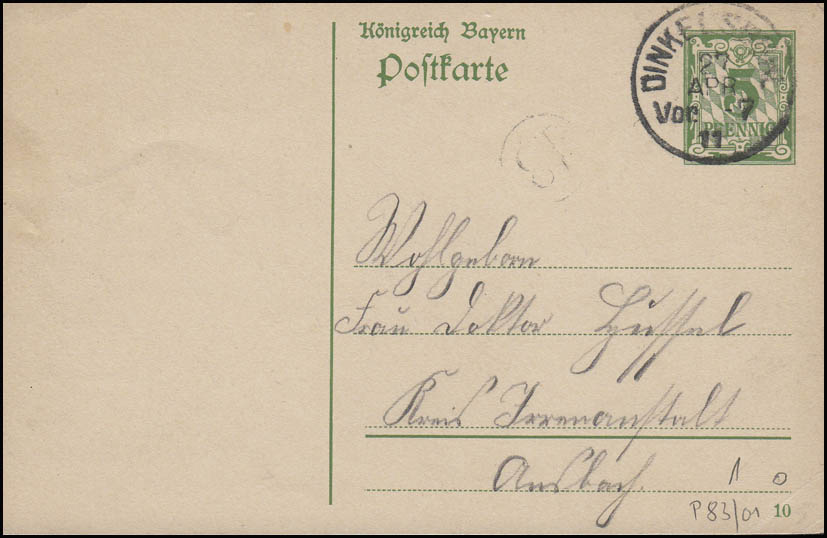 Königreich Bayern
Postkarte
DINKELSB
27
APR
Vor. 7
11
5
PFENNIG
Wohlgeborn
Frau Doktor
Kreis Irrenanstalt
Ansbach.
1 0
P83/01 10